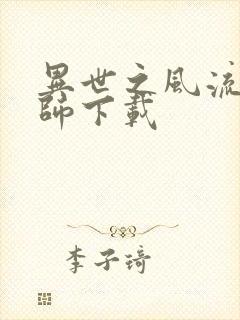 異世之風流
師下載
李子琦